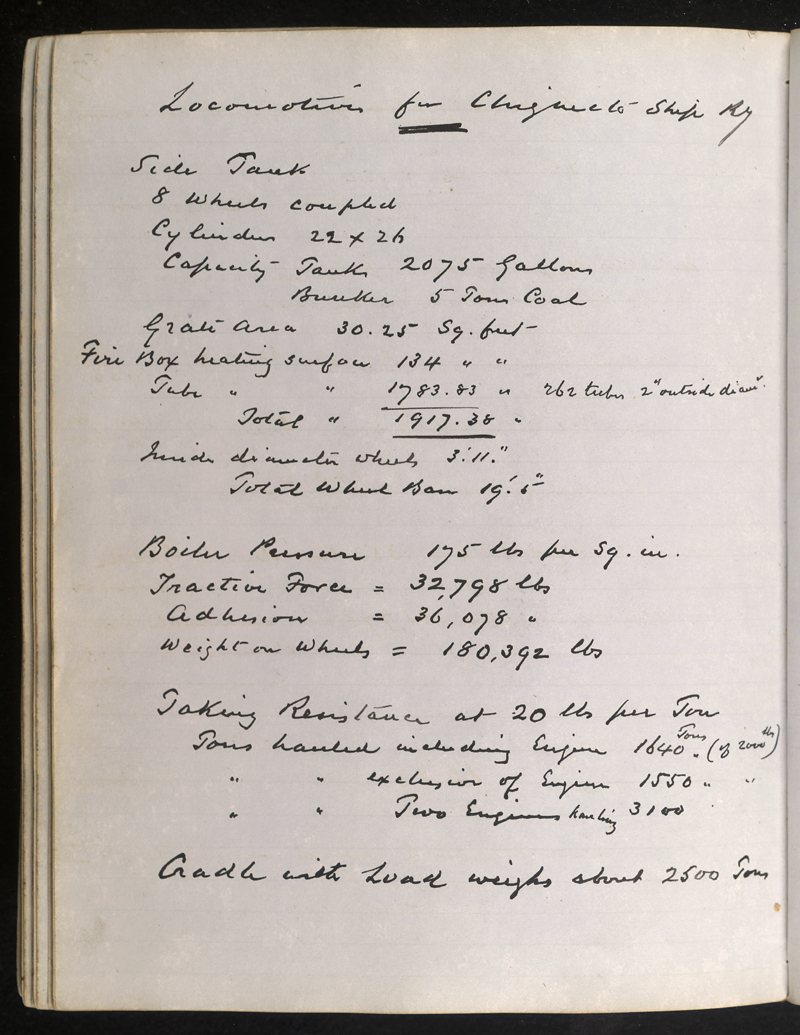 Locomotives for Chignecto Ship Ry
Side Tank
8 Wheels coupled
Cylinders 22 x 26
Capacity Tanks 2075 Gallons
Bunker 5 Tons Coal
Grate Area 30.25 Sq. feet
Fire Box heating surface 134 " "
Tube " " 1783.83 " 262 tubes 2" outside diam".
Total " 1917.38 "
Inside diameter wheels 3'.11."
Total Wheel Base 19'.5"
Boiler Pressure 175 lbs per Sq. in.
Tractive Force = 32,798 lbs
Adhesion = 36,078 "
Weight on Wheels = 180,392 lbs
Taking Resistance at 20 lbs per Ton
Tons hauled including Engine 1640 Tons " (of 2000 lbs)
" " exclusive of Engine 1550 " "
" " Two Engines hauling 3100
Cradle with Load weighs about 2500 Tons